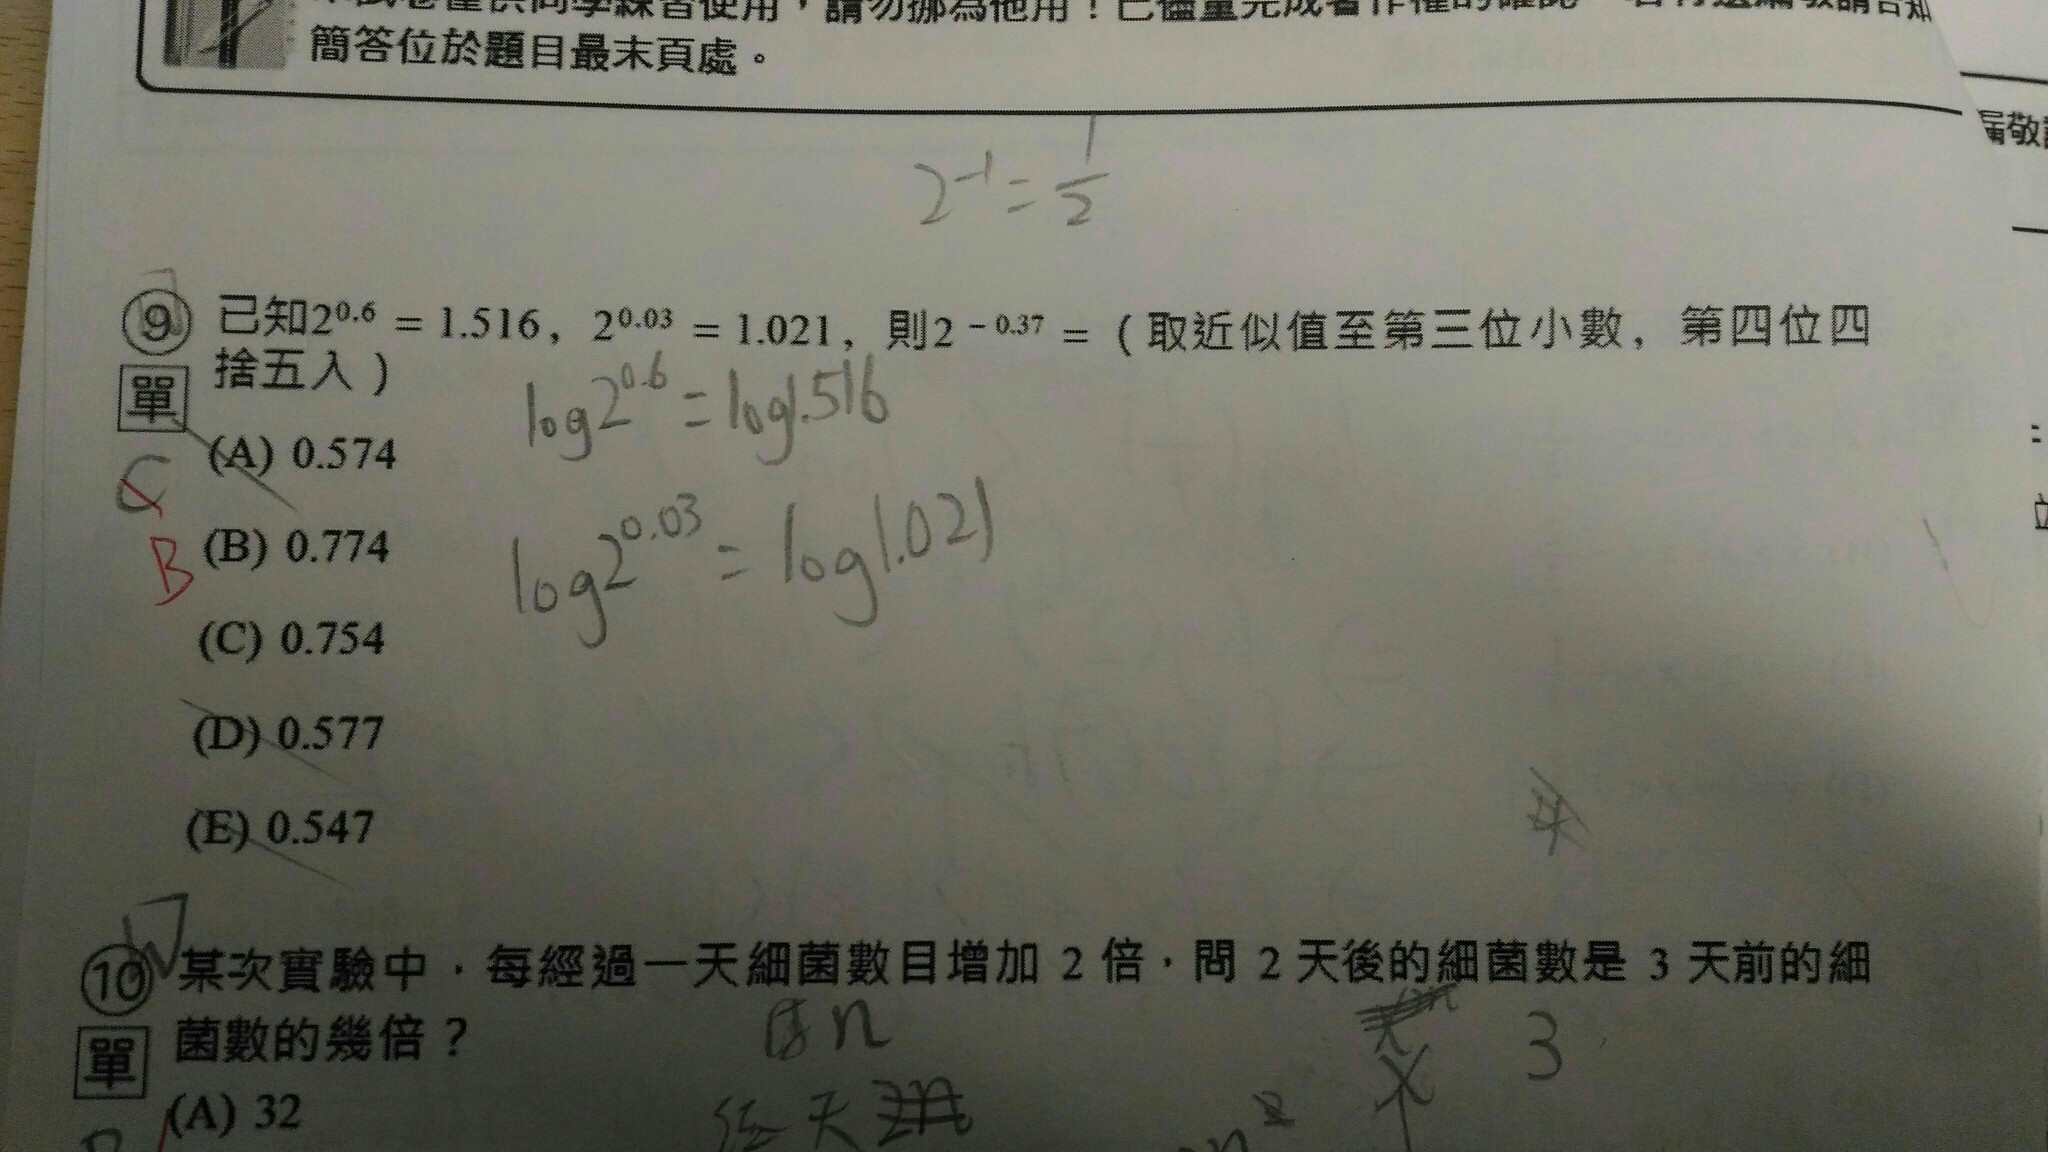 本試卷僅供同學練習使用，請勿挪為他用！已儘量完成著作權的確認，若有遺漏敬請告知
簡答位於題目最末頁處。
漏敬
2⁻¹ = 1/2
⑨ 已知2^0.6 = 1.516, 2^0.03 = 1.021, 則2^−0.37 = ( 取近似值至第三位小數, 第四位四
捨五入 )
單
log2^0.6 = log1.516
(A) 0.574
C
log2^0.03 = log1.021
(B) 0.774
B
(C) 0.754
(D) 0.577
(E) 0.547
⑩ 某次實驗中，每經過一天細菌數目增加 2 倍，問 2 天後的細菌數是 3 天前的細
菌數的幾倍？
單
n
3
(A) 32
天